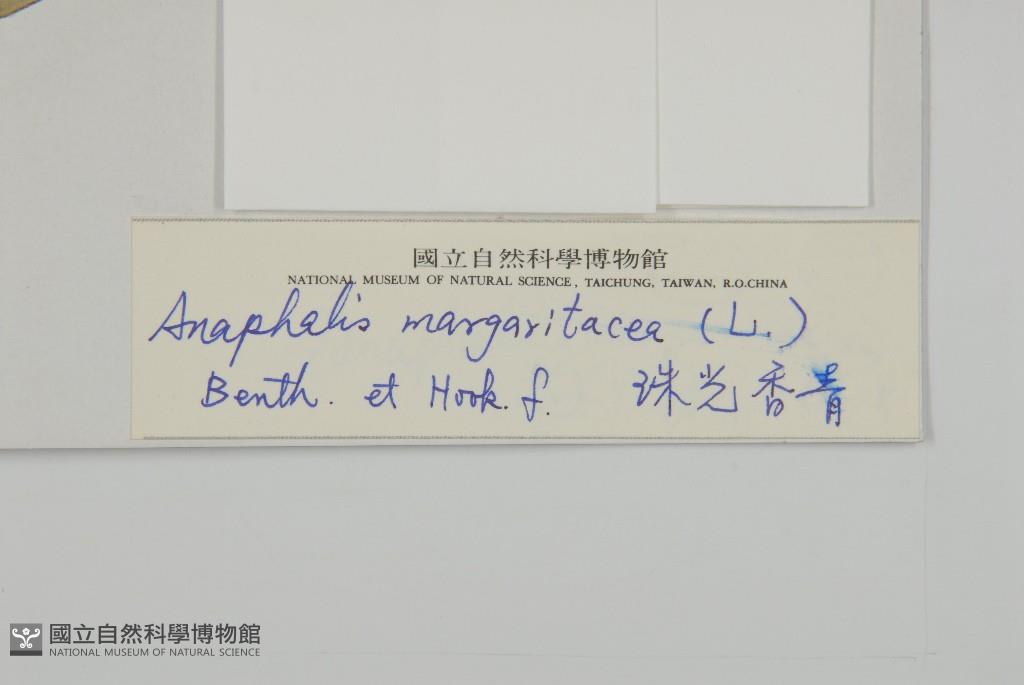 國立自然科學博物館
NATIONAL MUSEUM OF NATURAL SCIENCE, TAICHUNG, TAIWAN, R.O.CHINA
Anaphalis margaritacea (L.)
Benth. et Hook. f. 珠光香青
國立自然科學博物館
NATIONAL MUSEUM OF NATURAL SCIENCE